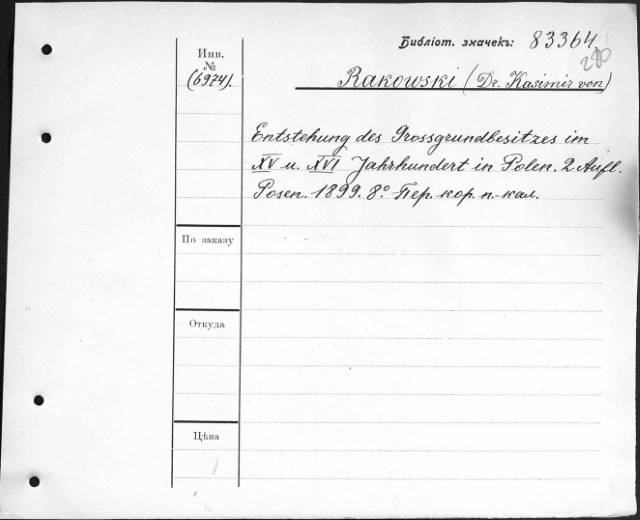 Библіот. значекъ: 83364.
280
Инв.
№
(6974).
Rakowski (Dr. Kasimir von)
Entstehung des Grossgrundbesitzes im
XV u. XVI Jahrhundert in Polen. 2 Aufl.
Posen. 1899. 8° Пер. кор. п. кал.
По заказу
Откуда
Цѣна